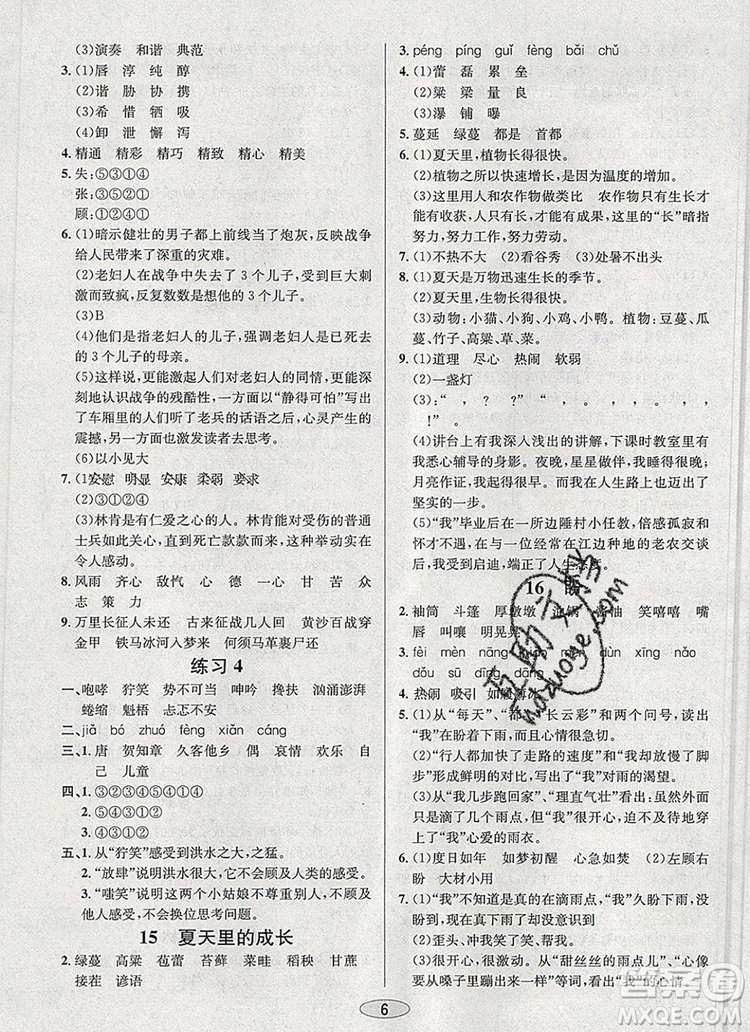 (3)演奏 和谐 典范
3.(1)唇 淳 纯 醇
(2)谐 胁 协 携
(3)希 惜 牺 吸
(4)卸 泄 懈 泻
4.精通 精彩 精巧 精致 精心 精美
5.失:⑤③①④
张:③①⑤④
顾:①③⑤④
6.(1)暗示健壮的男子都上前线当了炮灰,反映战争
给人民带来了深重的灾难。
(2)老妇人在战争中失去了3个儿子,受到巨大刺
激而致疯,反复数数是想他的3个儿子。
(3)B
(4)他们是指老妇人的儿子,强调老妇人是已死去
的3个儿子的母亲。
(5)这样说,更能激起人们对老妇人的同情,更能深
刻地认识战争的残酷性,一个“静得可怕”写出
了车厢里的人们听了老兵的话语之后,心灵产生的
震撼,与此同时也更能激发读者去思考。
(6)以小见大
7.(1)安慰 明显 安康 柔弱 要求
(2)⑤①③②④
(3)林肯是有仁爱之心的人。林肯能对受伤的普通
士兵如此关心,直到死亡款款而来,他的举动实在
令人感动。
8.风雨 齐心 敌忾 心 德 一心 甘 苦 众
志 策 力
9.万里长征人未还 古来征战几人回 黄沙百战穿
金甲 铁马冰河入梦来 何须马革裹尸还
练习4
一、咆哮 狞笑 势不可当 呻吟 搀扶 汹涌澎湃
蜷缩 魁梧 忐忑不安
二、jiǎ bó zhuó fèng xiǎn cáng
三、1.唐 贺知章 久客他乡 偶 哀情 欢乐 自
己 儿童
四、1.③②③④⑤①④
2.③⑤①②④
五、1.从“狞笑”感受到洪水之大,之猛。
2.“放肆”说明洪水很大,它不会顾及人类的感受。
3.“嗤笑”说明了这两个小姑娘不尊重别人,不顾及
他人感受,不会换位思考问题。
15 夏天里的成长
2.绿蔓 高粱 苞蕾 苔藓 菜畦 稻秧 甘蔗
接茬 谚语
3.péng píng guǐ fèng bǎi chǔ
4.(1)蕾 磊 累 垒
(2)粱 梁 量 良
(3)瀑 铺 曝
5.蔓延 绿蔓 都是 首都
6.(1)夏天里,植物长得很快。
(2)植物之所以快速增长,是因为温度的增加。
(3)这里用人和农作物做类比 农作物只有生长才
能有收获,人只有成长,才能有成果,这里的“长”暗指
努力,努力工作,努力劳动。
7.(1)不热不大 (2)看谷秀 (3)处暑不出头
8.(1)夏天是万物迅速生长的季节。
(2)夏天里,生物长得很快。
(3)动物:小猫、小狗、小鸡、小鸭。植物:豆蔓、瓜
蔓、竹子、高粱、草、菜。
9.(1)道理 尽心 热闹 软弱
(2)一盏灯
(3):“ , ? ?” “ , 。 , 。 。
!”。
(4)讲台上有我深入浅出的讲解,下课时教室里有
我悉心辅导的身影。夜晚,星星做伴,我睡得最晚;
月亮作证,我起得最早。我在人生路上已经迈出了
坚实的一步!
(5)“我”毕业后在一所边陲村小任教,倍感孤寂和
怀才不遇,在与一位经常在江边种地的老农交谈
后受到启迪,端正了人生态度。
16 盼
2.袖筒 斗篷 厚墩墩 雨衣袖 笑嘻嘻 嘴
唇 叫嚷 明晃晃
4.热闹 吸引 如履薄冰
5.(1)从“每天”、“都”、“长云彩”和两个问号,读出
了“我”在盼着下雨,而且心情很急切。
(2)“行人都加快了走路的速度”和“我放慢了脚
步”形成鲜明的对比,写出了“我”对雨的渴望。
(3)从“我几步跑回家”、“理直气壮”看出:虽然外面
只是几点雨,可在“我”的心里却是那么大,从中体现
出了“我”心爱的雨衣。
6.(1)度日如年 如梦初醒 心急如焚 (2)左顾右
盼 大材小用
7.(1)“我”不知道是真的在滴雨点,“我”久盼下雨,
盼到了却没有意识到
(2)歪头、冲、伸手、仰头、甩
(3)很激动。从“甜丝丝的雨点儿”、“心像
要从嗓子里蹦出来一样”等词,看出了“我”的心情。
6